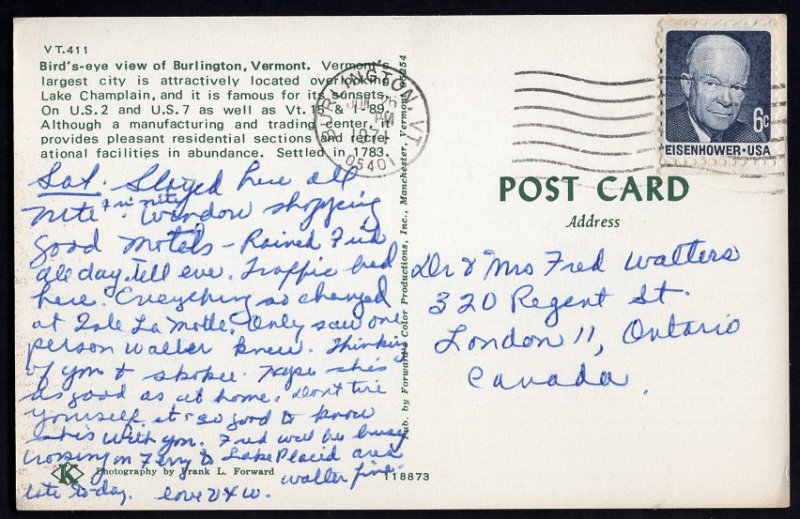 VT.411
Bird's-eye view of Burlington, Vermont. Vermont's
largest city is attractively located overlooking
Lake Champlain, and it is famous for its sunsets.
On U.S.2 and U.S.7 as well as Vt. & I-89.
Although a manufacturing and trading center, it
provides pleasant residential sections and recre-
ational facilities in abundance. Settled in 1783.
Sat. Stayed here all
nite. Fri nite Window shopping
good motels - Rained Fri
all day till eve. Traffic bad
here. Everything so changed
at Isle La Motte. Only saw one
person Walter knew. Thinking
of you &
as good as at home. Don't tire
yourself. It's so good to know
she's with you. Fred will be busy
crossing on Ferry to Lake Placid area
late today. love V & W. Walter fine.
K
Photography by Frank L. Forward
118873
Pub. by Forward's Color Productions, Inc., Manchester, Vermont 05254
BURLINGTON, VT
PM
1971
0540
6c
EISENHOWER·USA
POST CARD
Address
Dr & Mrs Fred Walters
320 Regent St.
London 11, Ontario
Canada.